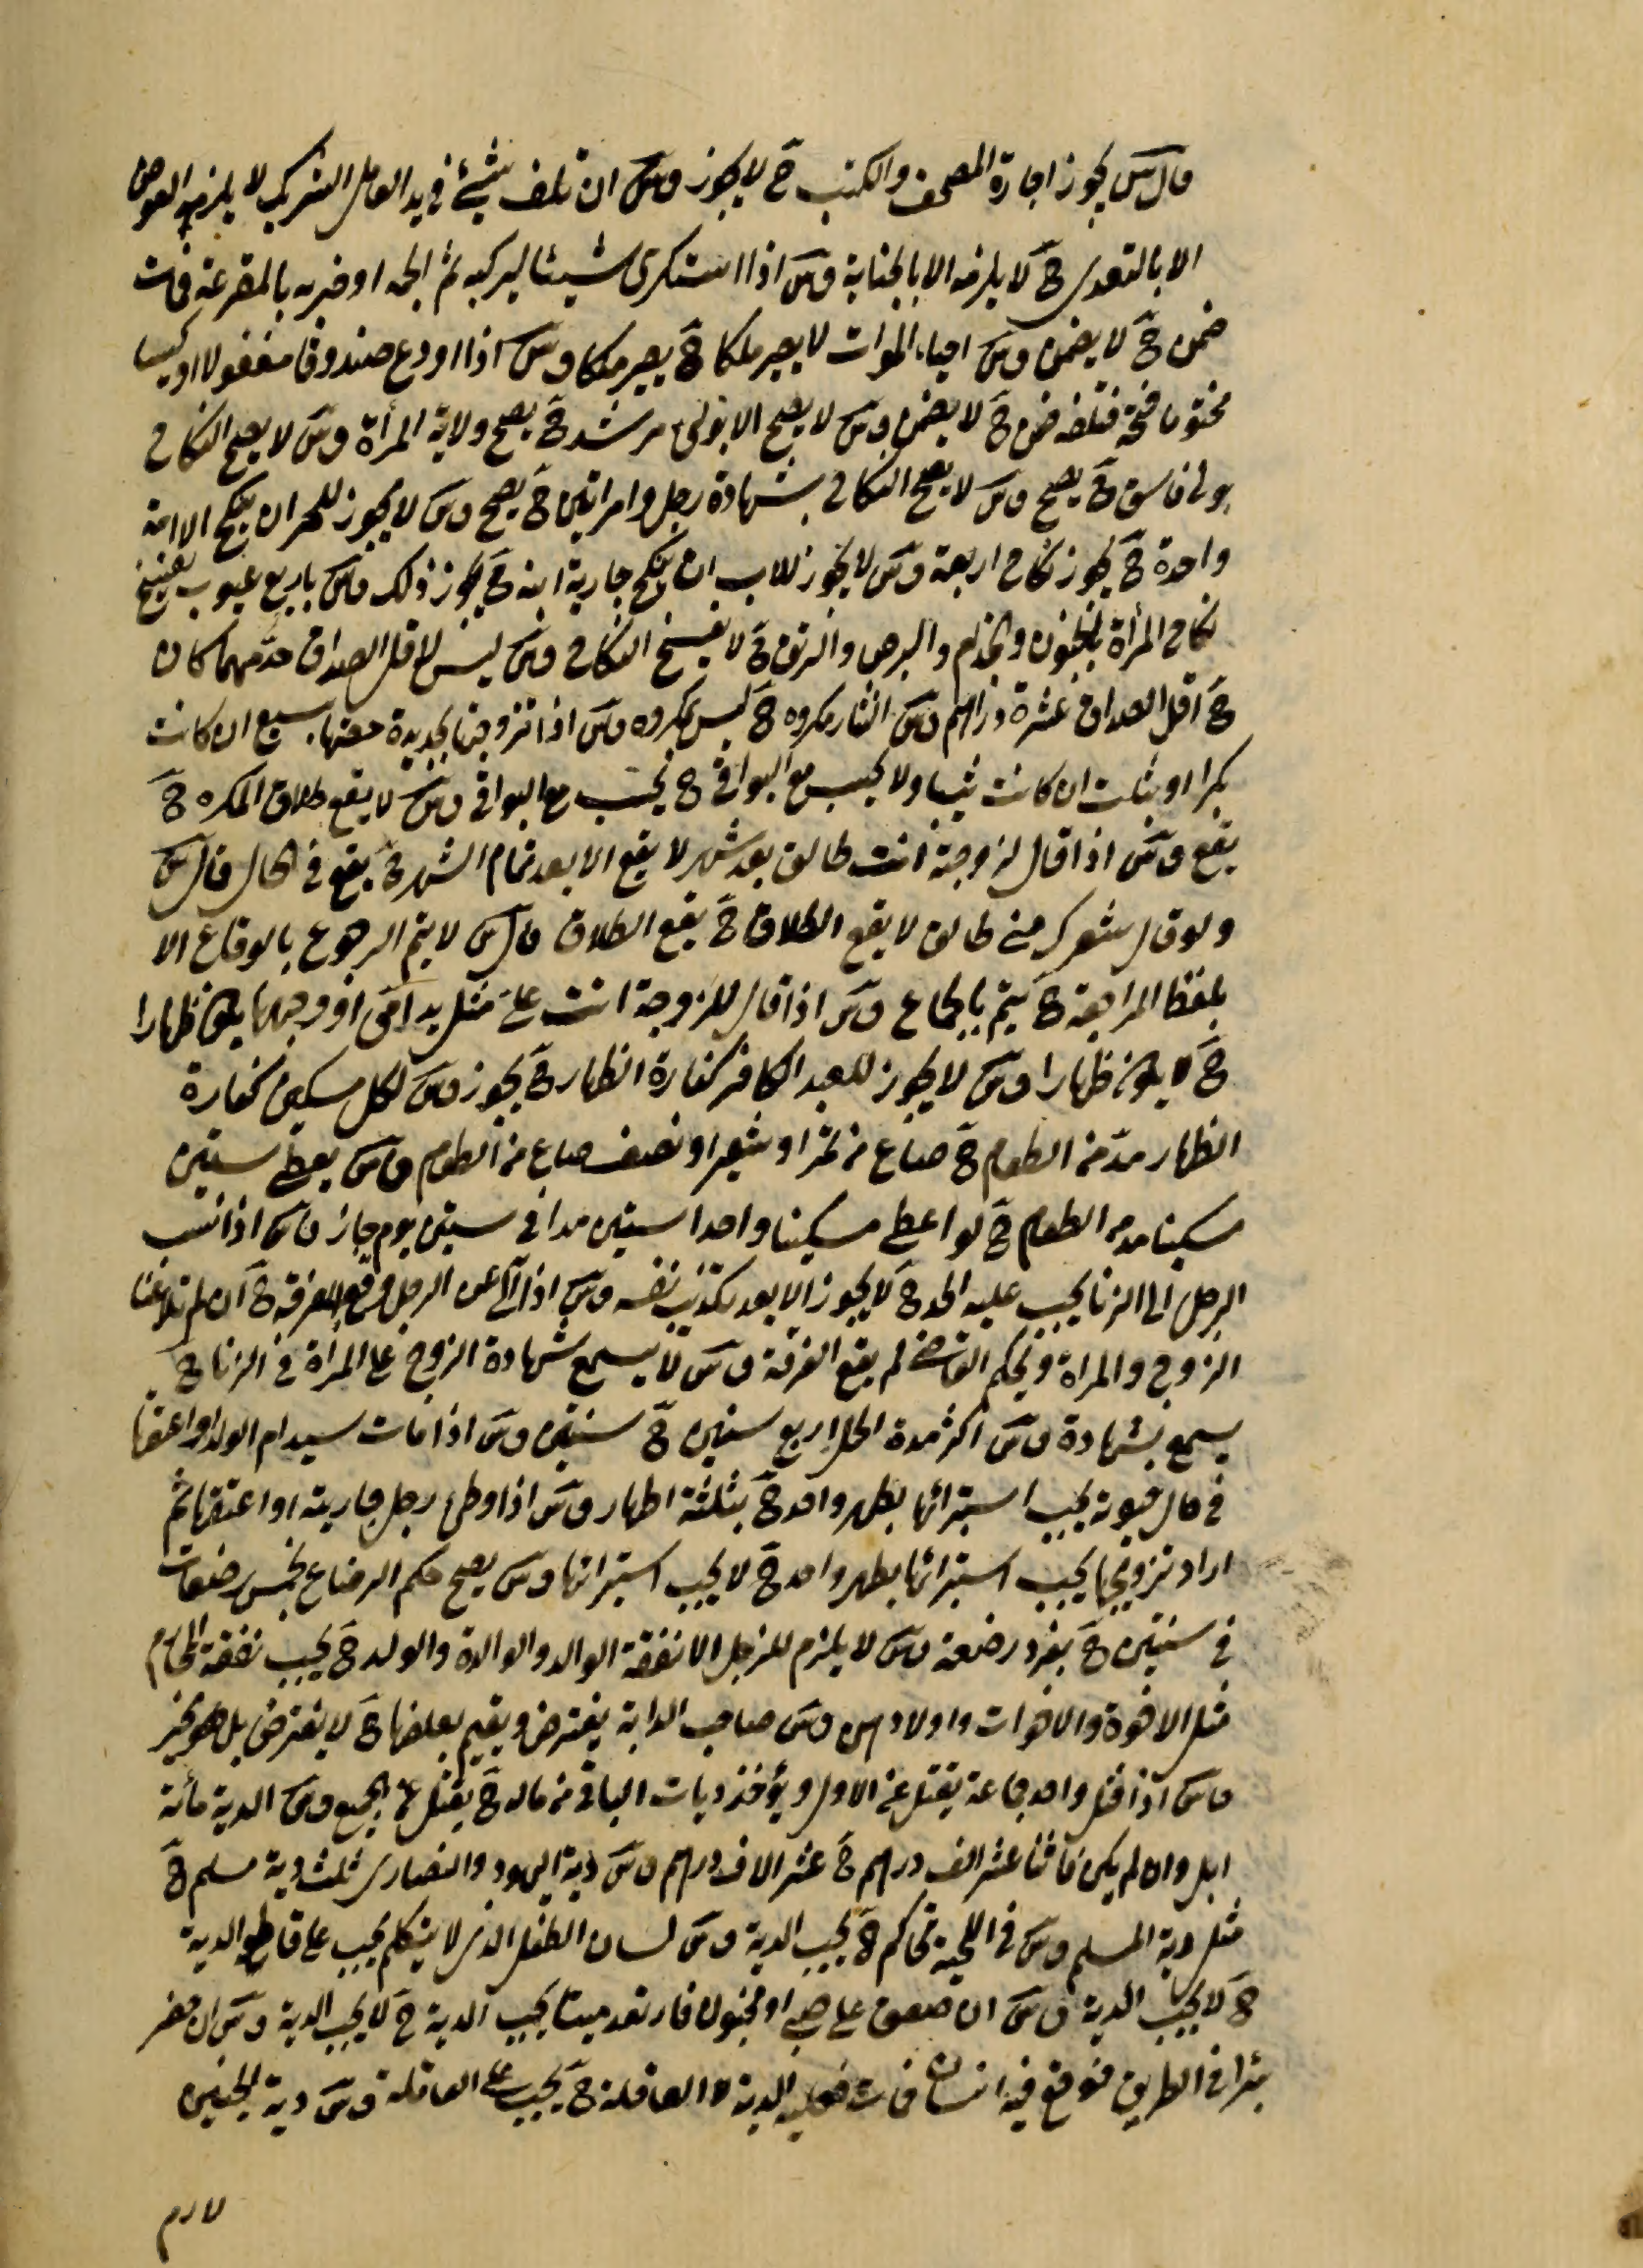 قال س يجوز اجارة المصحف والكتب ح لا يجوز وس ان تلف شيئ في يد العامل الشريك لا يلزمه العوض
الا بالتعدى ح لا يلزمه الا بالجناية وس اذا استكرى شيئا ليركبه ثم الجمه او ضربه بالمقرعة فمات
ضمن ح لا يضمن وس احياء الموات لا يصير ملكا ح يصير ملكا وس اذا اودع صندوقا مقفولا او كيسا
مختوما فتحه فتلف ضمن ح لا يضمن وس لا يصح الا بولى مرشد ح يصح ولاية المرأة وس لا يصح النكاح
بولى فاسق ح يصح وس لا يصح النكاح بشهادة رجل وامراتين ح يصح وس لا يجوز للحر ان ينكح الا امة
واحدة ح يجوز نكاح اربعة وس لا يجوز للاب ان ينكح جارية ابنه ح يجوز ذلك وس باربع عيوب يفسخ
نكاح المرأة بالجنون والجذام والبرص والرتق ح لا يفسخ النكاح وس ليس لاقل الصداق حد مهما كان
ح اقل الصداق عشرة دراهم وس النثار مكروه ح ليس بمكروه وس اذا تزوجت بجديدة حقها سبع ان كانت
بكرا او ثلث ان كانت ثيبا ولا يحسب مع البواقى ح يحسب مع البواقى وس لا يقع طلاق المكره ح
يقع وس اذا قال لزوجة انت طالق بعد شهر لا يقع الا بعد تمام الشهر ح يقع في الحال قال س
ولو قال شعرك منى طالق لا يقع الطلاق ح يقع الطلاق قال س لا يتم الرجوع بالوقاع الا
بلفظ المراجعة ح يتم بالجماع وس اذا قال للزوجة انت على مثل يد امى او وجهها يكون ظهارا
ح لا يكون ظهارا وس لا يجوز للعبد الكافر كفارة الظهار ح يجوز وس لكل مسكين كفارة
الظهار مد من الطعام ح صاع من تمر او شعير او نصف صاع من الطعام وس يعطى ستين
مسكينا مد من الطعام ح لو اعطى مسكينا واحدا ستين مدا في ستين يوم جاز وس اذا نسب
الرجل الى الزنا يجب عليه الحد ح لا يجوز الا بعد تكذيب نفسه وس اذا لاعن الرجل وقع الفرقة ح ان لم تلاعنا
الزوج والمراة ويحكم القاضى لم يقع الفرقة وس لا يسمع شهادة الزوج على المرأة في الزنا ح
يسمع شهادة وس اكثر مدة الحمل اربع سنين ح سنتين وس اذا مات سيد ام الولد او اعتقها
في حال حيوته يجب استبرائها بطهر واحد ح بثلثة اطهار وس اذا وطئ رجل جاريته او اعتقها ثم
اراد تزويجها يجب استبرائها بطهر واحد ح لا يجب استبرائها وس يصح حكم الرضاع بخمس رضعات
في سنتين ح بفرد رضعة وس لا يلزم للرجل الا نفقة الوالد والوالدة والولد ح يجب نفقة المحارم
مثل الاخوة والاخوات واولادهن وس صاحب الدابة يفترض ويقيم بعلفها ح لا يفترض بل هو مخير
وس اذا قتل واحد جماعة يقتل عن الاول ويؤخذ ديات الباقى من ماله ح يقتل عن الجميع وس الدية مائة
ابل وان لم يكن فاثنا عشر الف درهم ح عشر الاف درهم وس دية اليهود والنصارى ثلث دية مسلم ح
مثل دية المسلم وس في اللحية تحاكم ح يجب الدية وس لسان الطفل الذى لا يتكلم يجب على قاطع الدية
ح لا يجب الدية وس ان صعق على صبى او مجنون فارتعد ميتا يجب الدية ح لا يجب الدية وس ان حفر
بئرا في الطريق فوقع فيه انسان فمات فعليه الدية لا العاقلة ح يجب على العاقلة وس دية الجنين